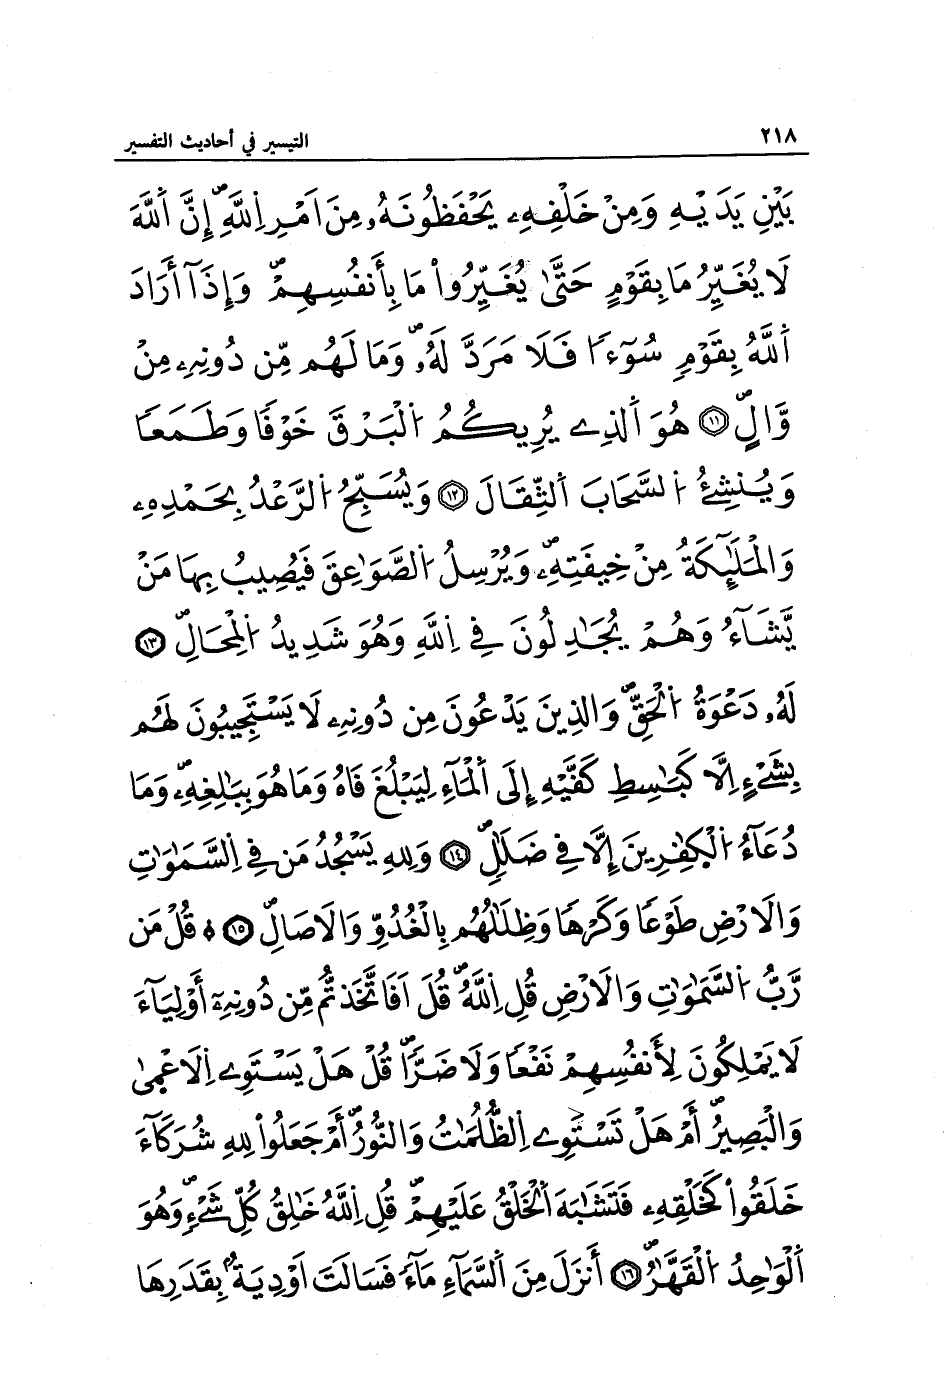 ٢١٨ التيسير في أحاديث التفسير
بَيْنِ يَدَيْهِ وَمِنْ خَلْفِهِۦ يَحْفَظُونَهُۥ مِنَ اَمْرِ اِللَّهِۖ إِنَّ اَللَّهَ
لَا يُغَيِّرُ مَا بِقَوْمٍ حَتَّىٰ يُغَيِّرُواْ مَا بِأَنفُسِهِمْۖ وَإِذَآ أَرَادَ
اَللَّهُ بِقَوْمٖ سُوٓءٗا فَلَا مَرَدَّ لَهُۥۖ وَمَا لَهُم مِّن دُونِهِۦ مِنْ
وَّالٍۖ ١١ هُوَ اَلذِے يُرِيكُمُ اُلْبَرْقَ خَوْفٗا وَطَمَعٗا
وَيُنشِئُ اُلسَّحَابَ اَلثِّقَالَ ١٢ وَيُسَبِّحُ اُلرَّعْدُ بِحَمْدِهِۦ
وَالْمَلَٰٓئِكَةُ مِنْ خِيفَتِهِۦۖ وَيُرْسِلُ اُلصَّوَٰعِقَ فَيُصِيبُ بِهَا مَنْ
يَّشَآءُ وَهُمْ يُجَٰدِلُونَ فِے اِللَّهِ وَهُوَ شَدِيدُ اُلْمِحَالِۖ ١٣
لَهُۥ دَعْوَةُ اُلْحَقِّۖ وَالذِينَ يَدْعُونَ مِن دُونِهِۦ لَا يَسْتَجِيبُونَ لَهُم
بِشَےْءٍ اِلَّا كَبَٰسِطِ كَفَّيْهِ إِلَى اَلْمَآءِ لِيَبْلُغَ فَاهُ وَمَا هُوَ بِبَٰلِغِهِۦۖ وَمَا
دُعَآءُ اُلْكٰفِرِينَ إِلَّا فِے ضَلَٰلٖۖ ١٤ وَلِلهِ يَسْجُدُ مَن فِے اِلسَّمَٰوَٰتِ
وَالَارْضِ طَوْعٗا وَكَرْهٗا وَظِلَٰلُهُم بِالْغُدُوِّ وَالَاصَالِۖ ١٥ ۞ قُلْ مَن
رَّبُّ اُلسَّمَٰوَٰتِ وَالَارْضِ قُلِ اِللَّهُۖ قُلَ اَفَاتَّخَذتُّم مِّن دُونِهِۦٓ أَوْلِيَآءَ
لَا يَمْلِكُونَ لِأَنفُسِهِمْ نَفْعٗا وَلَا ضَرّٗاۖ قُلْ هَلْ يَسْتَوِے اِلَاعْمٰى
وَالْبَصِيرُۖ أَمْ هَلْ تَسْتَوِے اِلظُّلُمَٰتُ وَالنُّورُۖ أَمْ جَعَلُواْ لِلهِ شُرَكَآءَ
خَلَقُواْ كَخَلْقِهِۦ فَتَشَٰبَهَ اَلْخَلْقُ عَلَيْهِمْۖ قُلِ اِللَّهُ خَٰلِقُ كُلِّ شَےْءٖۖ وَهُوَ
اَلْوَٰحِدُ اُلْقَهَّٰرُۖ ١٦ أَنزَلَ مِنَ اَلسَّمَآءِ مَآءٗ فَسَالَتَ اَوْدِيَةُۢ بِقَدَرِهَا